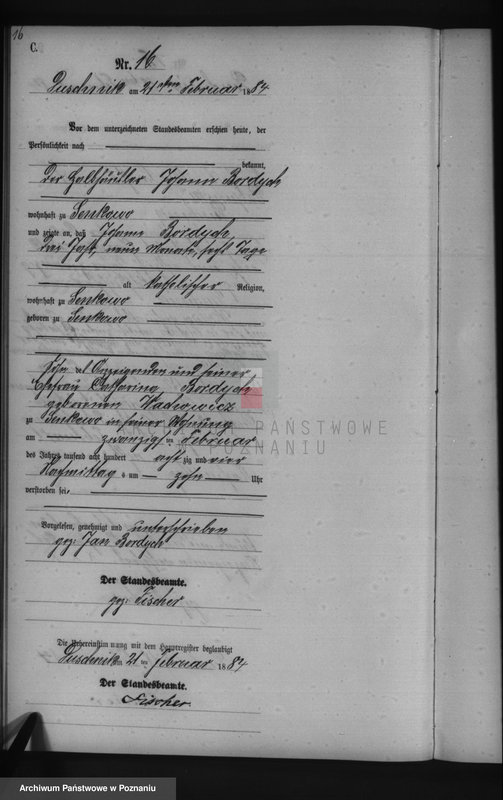 16
C.
Nr. 16
Duschnik am 21 ten Februar 1884
Vor dem unterzeichneten Standesbeamten erschien heute, der
Persönlichkeit nach
bekannt,
Der Halbhäusler Johann Bordych
wohnhaft zu Senkowo
und zeigte an, daß Johann Bordych
Drei Jahr, neun Monate, sechs Tage
alt katholischer Religion,
wohnhaft zu Senkowo
geboren zu Senkowo
Sohn des Anzeigenden und seiner
Ehefrau Catharina Bordych
geborenen Wachowicz
zu Senkowo in seiner Wohnung
am zwanzigsten Februar
des Jahres tausend acht hundert acht zig und vier
Nachmittag s um zehn Uhr
verstorben sei.
Vorgelesen, genehmigt und unterschrieben
gez: Jan Bordych
Der Standesbeamte.
gez: Fischer
Die Uebereinstimmung mit dem Hauptregister beglaubigt
Duschnik am 21 ten Februar 1884
Der Standesbeamte.
Fischer.
PAŃSTWOWE
POZNANIU
Archiwum Państwowe w Poznaniu